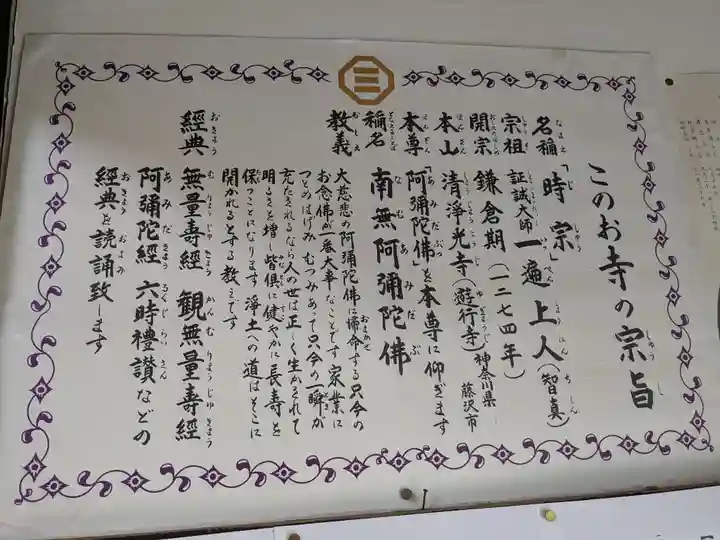 このお寺の宗旨
名稱「時宗」
宗祖 証誠大師 一遍上人(智真)
開宗 鎌倉期(一二七四年)
本山 清淨光寺(遊行寺)神奈川県藤沢市
本尊「阿彌陀佛」を本尊に仰ぎます
稱名 南無阿彌陀佛
教義 大慈悲の阿彌陀佛に帰命する只今の
お念佛が一番大事なことです 家業に
つとめはげみ むつみあって只今の一瞬が
充たされるなら人の世は正しく生かされて
明るさを増し皆倶に健やかに長寿を
保つことになります 淨土への道はそこに
開かれるとする教えです
經典 無量壽經 観無量壽經
阿彌陀經 六時禮讃などの
經典を読誦致します